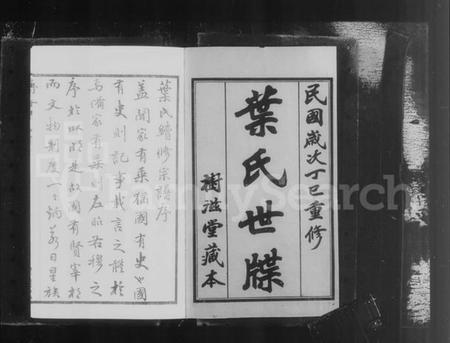 民國歲次丁巳重修
葉氏世牒
樹滋堂藏本
葉氏續修宗譜序
蓋聞家有乘猶國有史國
有史則記事載言之體於
焉備家有乘左昭右穆之
序於以明是故國有賢宰於
而文物制度一一炳若日星族
FamilySearch